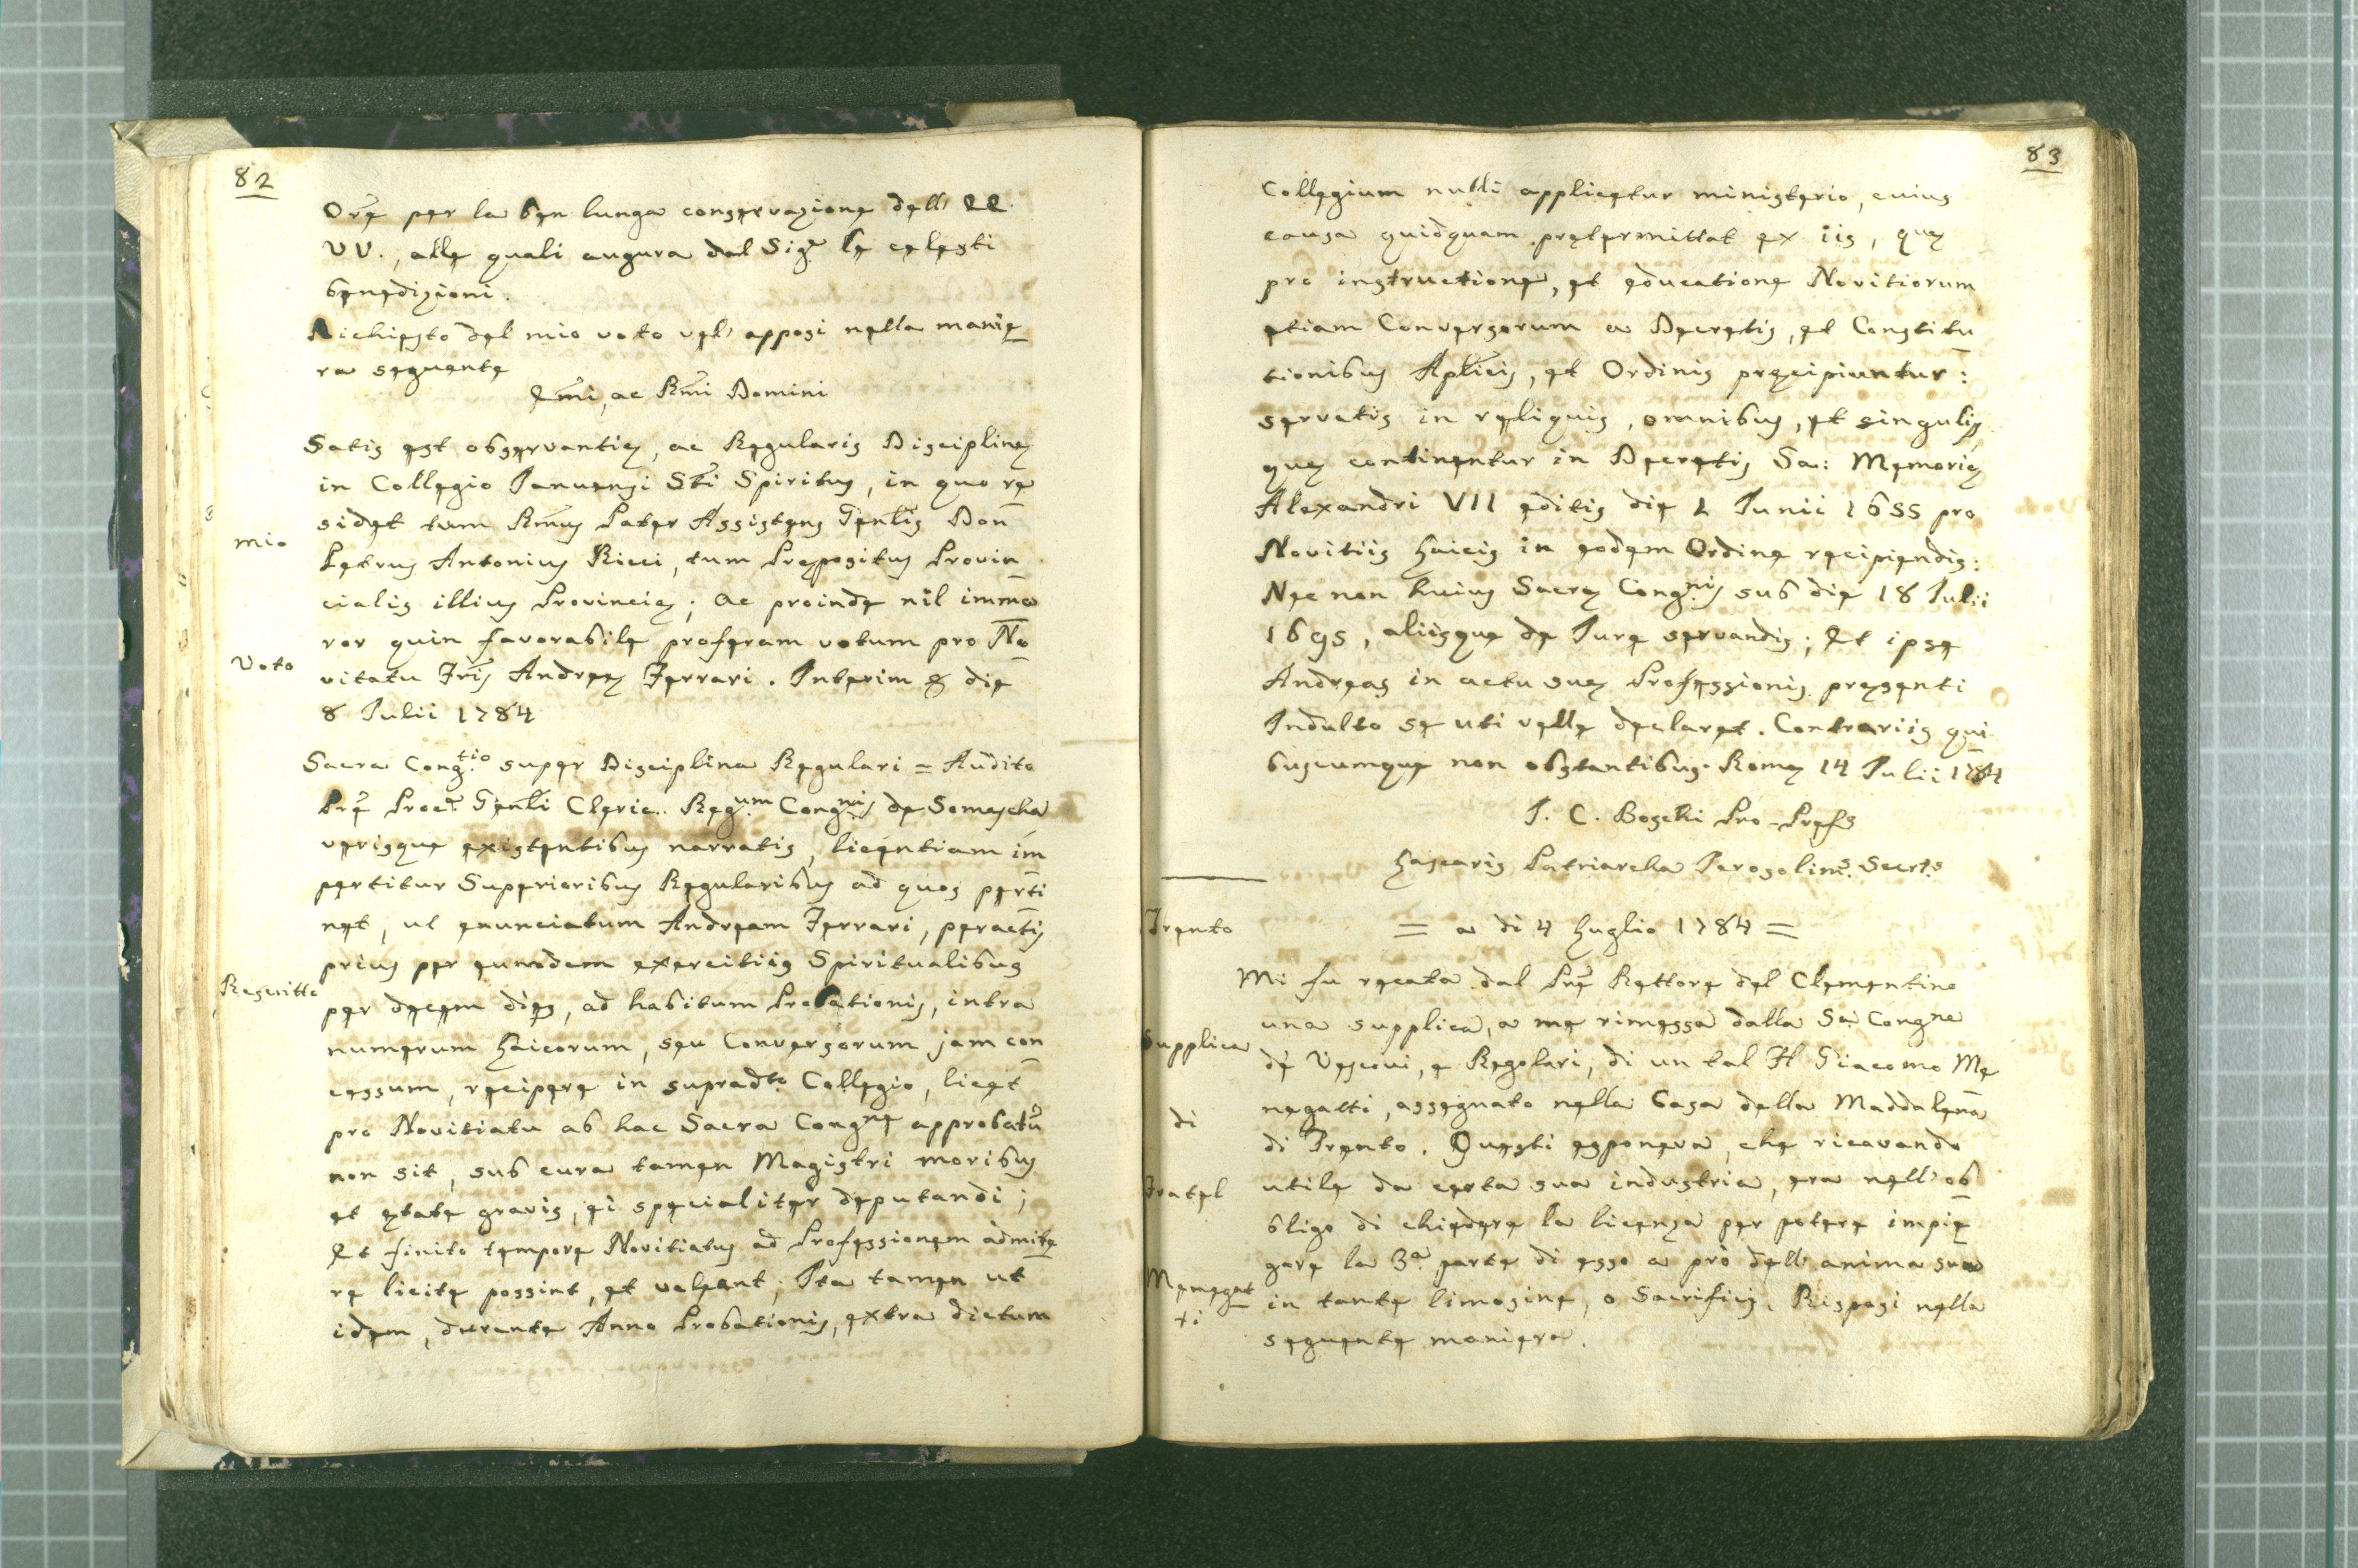 82
Orē per la ben lunga conservazione dell' EE.
VV., alle quali augura dal Sigr̃ le celesti
benedizioni.
Richiesto del mio voto vel' apposi nella manie
ra seguente
Em̃i, ac Rm̃i Domini
Satis est observantię, ac Regularis Disciplinę
in Collegio Januensi Sti Spiritus, in quo re
sidet tam Rm̃us Pater Assistens Genlis Don
mio
Petrus Antonius Ricci, tum Prępositus Provin
cialis illius Provincię; ac proinde nil immo
ror quin favorabile proferam votum pro No
voto
vitatu Fris Andreę Ferrari. Interim & die
8 Julii 1784
Sacra Congtio super Disciplina Regulari = Audito
Prē Procr̃ Genli Cleric. Regum Congnis de Somascha
verisque existentibus narratis, licentiam im
pertitur Superioribus Regularibus ad quos perti
net, ut enunciatum Andream Ferrari, peractis
prius per eumdem exercitiis Spiritualibus
Rescritto
per decem dies, ad habitum Probationis, intra
numerum Laicorum, seu Conversorum jam con
cessum, recipere in supradto Collegio, licet
pro Novitiatu ab hac Sacra Congne approbatũ
non sit, sub cura tamen Magistri moribus
et ętate gravis, ei specialiter deputandi;
Et finito tempore Novitiatus ad Professionem admitte
re licite possint, et valeant; Ita tamen ut
idem, durante Anno Probationis, extra dictum
83
Collegium nulli applicetur ministerio, cuius
causa quidquam prętermittat ex iis, quę
pro instructione, et educatione Novitiorum
etiam Conversorum a Decretis, et Constitu
tionibus Aplicis, et Ordinis pręcipiuntur:
servatis in reliquis, omnibus, et singulis
quę continentur in Decretis Sa: Memorię
Alexandri VII editis die 1 Junii 1655 pro
Novitiis Laicis in eodem Ordine recipiendis:
Nec non huius Sacrę Congnis sub die 18 Julii
1695, aliisque de Jure servandis; Et ipse
Andreas in actu suę Professionis pręsenti
Indulto se uti velle declaret. Contrariis qui
buscumque non obstantibus. Romę 14 Julii 1784
I. C. Boschi Pro-Prefs
Lascaris Patriarcha Jerosolims. Secrts
= a di 4 Luglio 1784 =
Trento
Mi fu recata dal Prē Rettore del Clementino
una supplica, a me rimessa dalla Sa. Congne
Supplica
de' Vescovi, e Regolari, di un tal Fl Giacomo Me
negatti, assegnato nella Casa della Maddalena
di
di Trento. Questi esponeva, che ricavando
Fratel
utile da certa sua industria, era nell' ob
bligo di chiedere la licenza per potere impie
gare la 3a. parte di esso a prò dell' anima sua
Menegat
ti
in tante limosine, o Sacrificj. Risposi nella
seguente maniera.